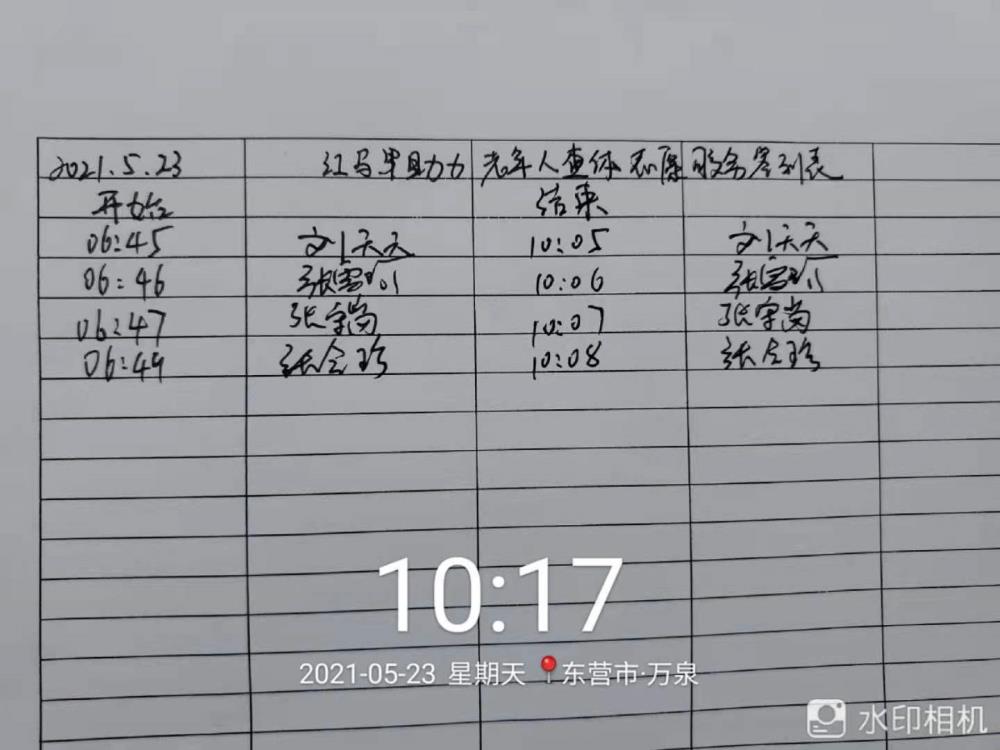 2021.5.23 红马甲助力老年人查体志愿服务签到表
开始 结束
06:45 刘天天 10:05 刘天天
06:46 张 10:06 张
06:47 张宇岗 10:07 张宇岗
06:49 张会珍 10:08 张会珍
10:17
2021-05-23 星期天 东营市·万泉
水印相机